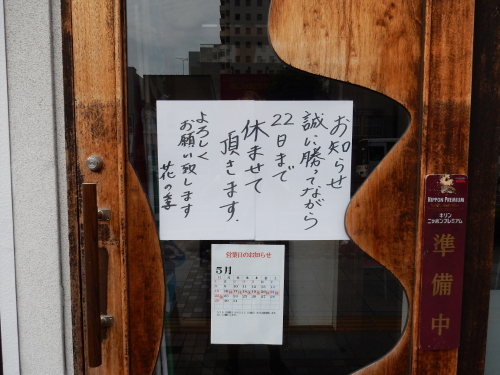 お知らせ
誠に勝ってながら
22日まで
休ませて
頂きます.
よろしく
お願い致します
花の季
営業日のお知らせ
5月
NIPPON PREMIUM
キリン
ニッポンプレミアム
準備中